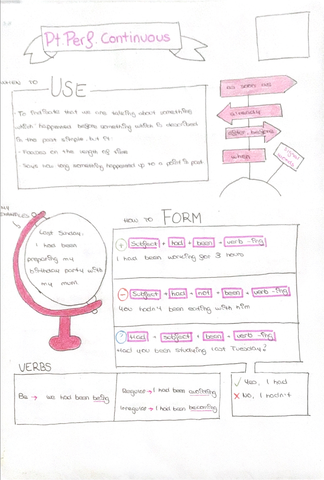 Pt. Perf. Continuous
HOW TO USE
To indicate that we are talking about something
which happened before something which is described
in the past simple, but it
focuses on the length of time
Says how long something happened up to a point in past
as soon as
already
after, before
when
MY EXAMPLES
Last Sunday,
I had been
preparing my
birthday party with
my mum
HOW TO FORM
+ Subject + had + been + verb -ing
I had been working for 3 hours
- Subject + had + not + been + verb -ing
You hadn't been eating with him
? Had + subject + been + verb -ing
Had you been studying last Tuesday?
VERBS
Be → We had been being
Regular → I had been
Irregular → I had been becoming
✓ Yes, I had
✗ No, I hadn't